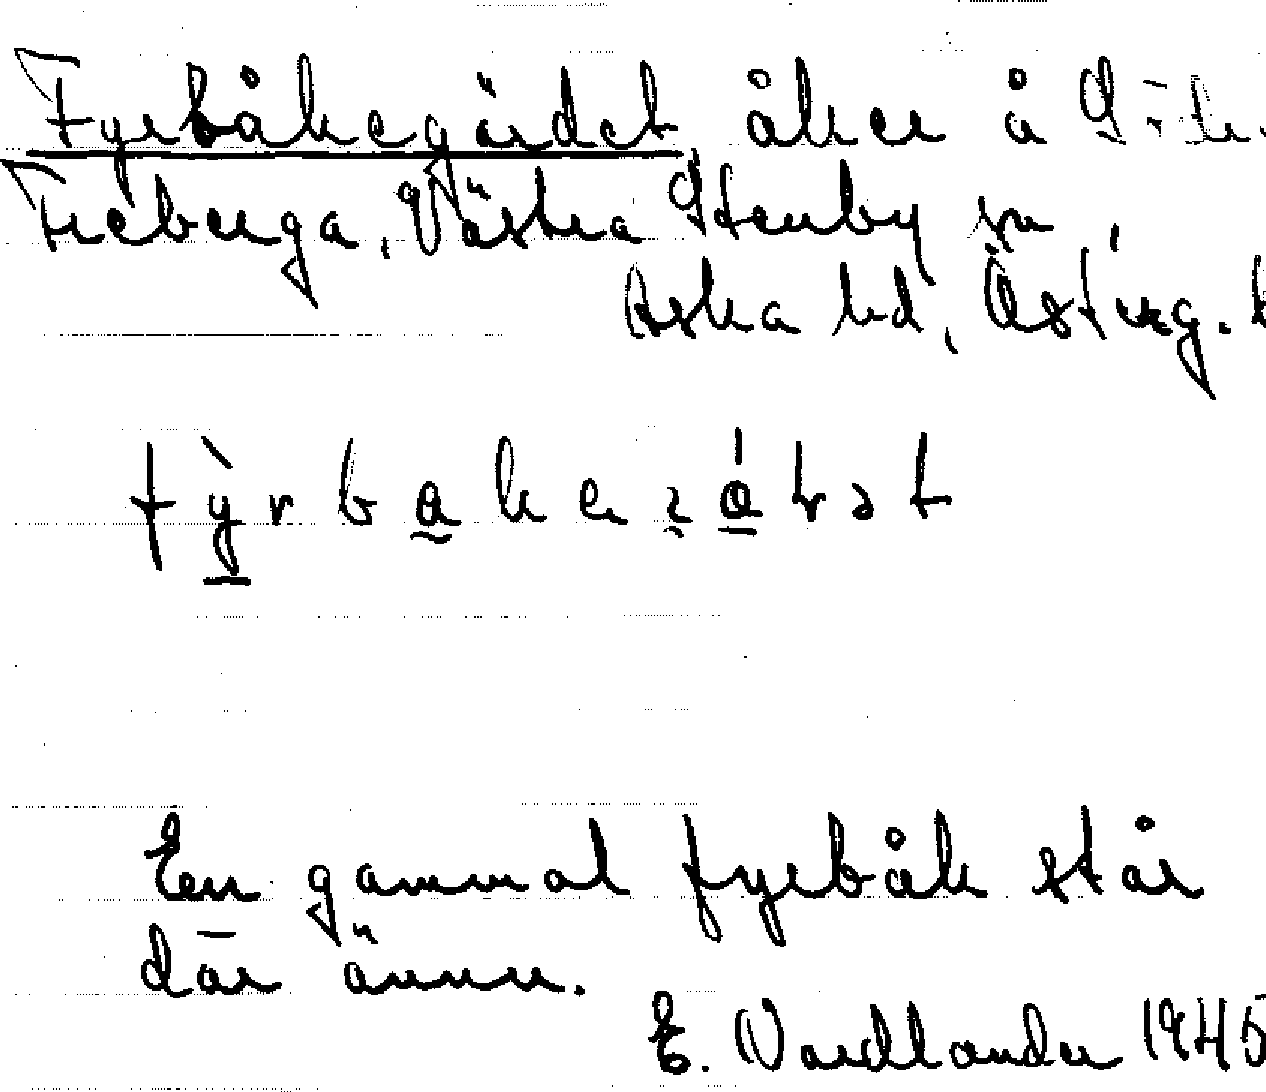 Fyrbåkegärdet åker å
Freberga, Västra Stenby sn,
Aska hd, Österg.
En gammal fyrbåk står
där ännu.
E. Nordlander 1945